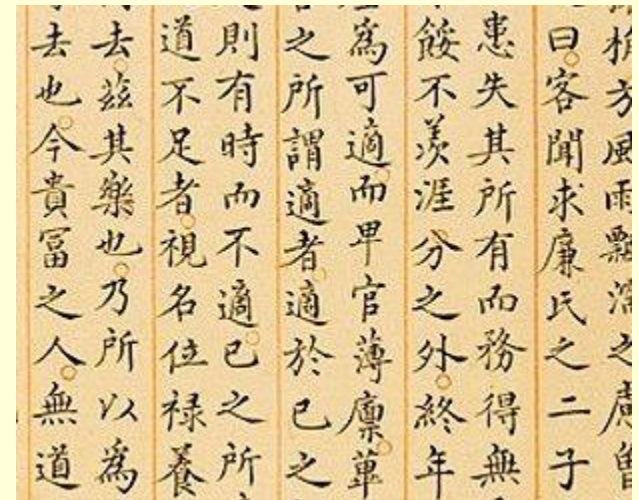 方風雨飄之
曰。客聞求廉氏之二子
患失其所有而務得無
餒不羨涯分之外。終年
為可適。而卑官薄廩。
之所謂適者。適於已之
則有時而不適。已之所
道不足者。視名位祿養
去。茲其樂也。乃所以為
去也。今貴富之人。無道